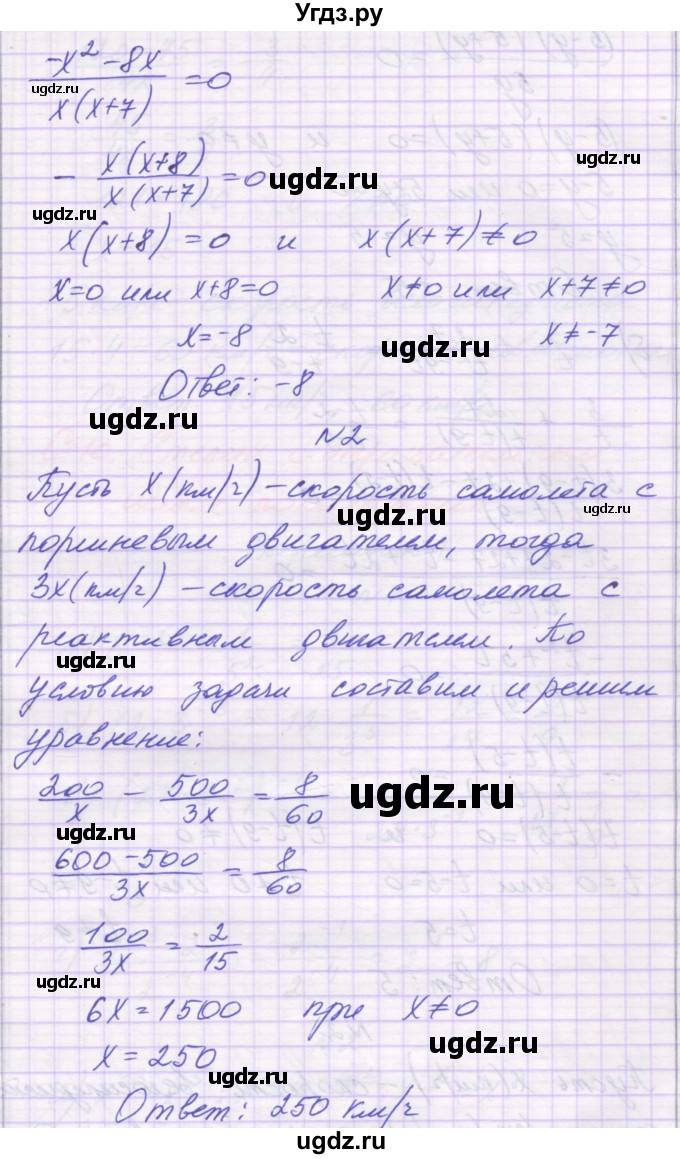 Угдз.ру
(-x² - 8x) / (x(x+7)) = 0
ugdz.ru
- (x(x+8)) / (x(x+7)) = 0
ugdz.ru
ugdz.ru
ugdz.ru
x(x+8) = 0 и x(x+7) ≠ 0
x=0 или x+8=0 x≠0 или x+7≠0
x=-8 x≠-7
ugdz.ru
Ответ: -8
ugdz.ru
N2
Пусть x(км/ч) – скорость самолета с
ugdz.ru
ugdz.ru
поршневым двигателем, тогда
3x(км/ч) – скорость самолета с
реактивным двигателем. По
ugdz.ru
условию задачи составим и решим
уравнение:
200/x - 500/3x = 8/60
ugdz.ru
(600-500)/3x = 8/60
100/3x = 2/15
ugdz.ru
6x = 1500 при x≠0
ugdz.ru
x = 250
ugdz.ru
Ответ: 250 км/ч
ugdz.ru
ugdz.ru